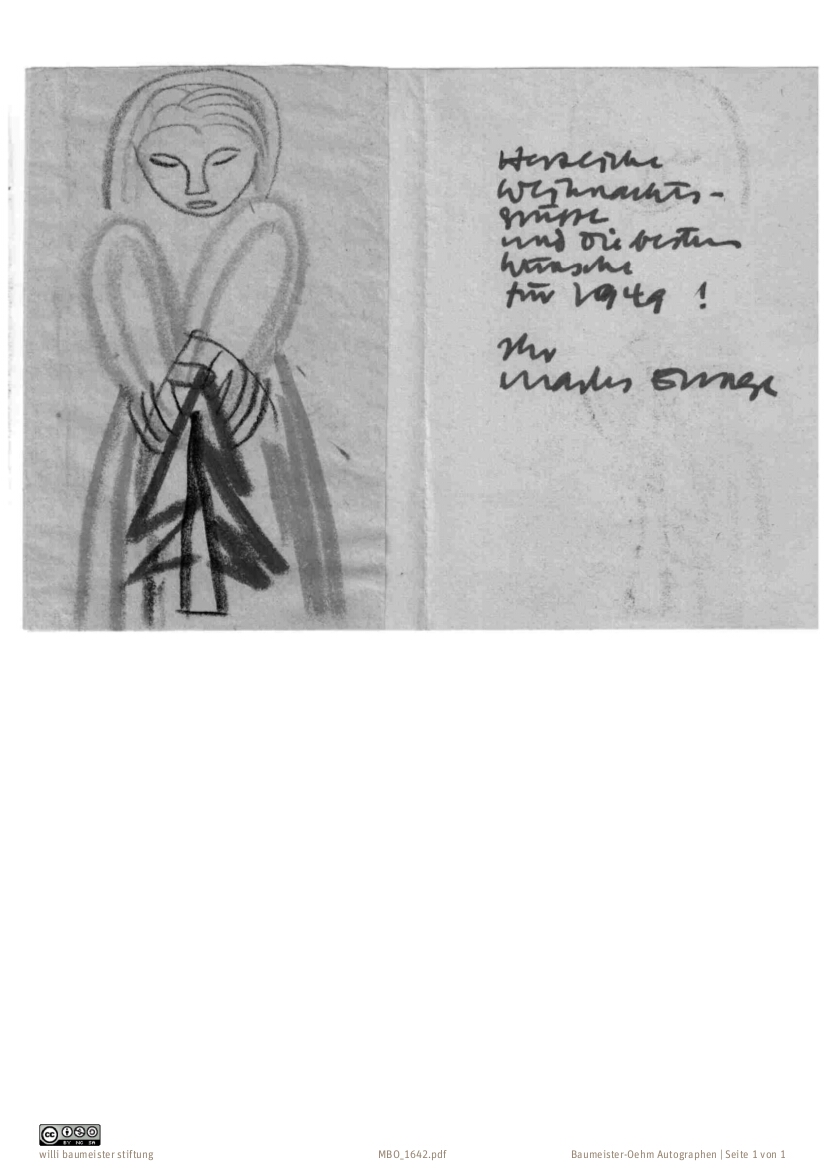 Herzliche
Weihnachts-
grüsse
und die besten
Wünsche
für 1949 !
Ihr
cc BY NC SA
willi baumeister stiftung
MBO_1642.pdf
Baumeister-Oehm Autographen | Seite 1 von 1